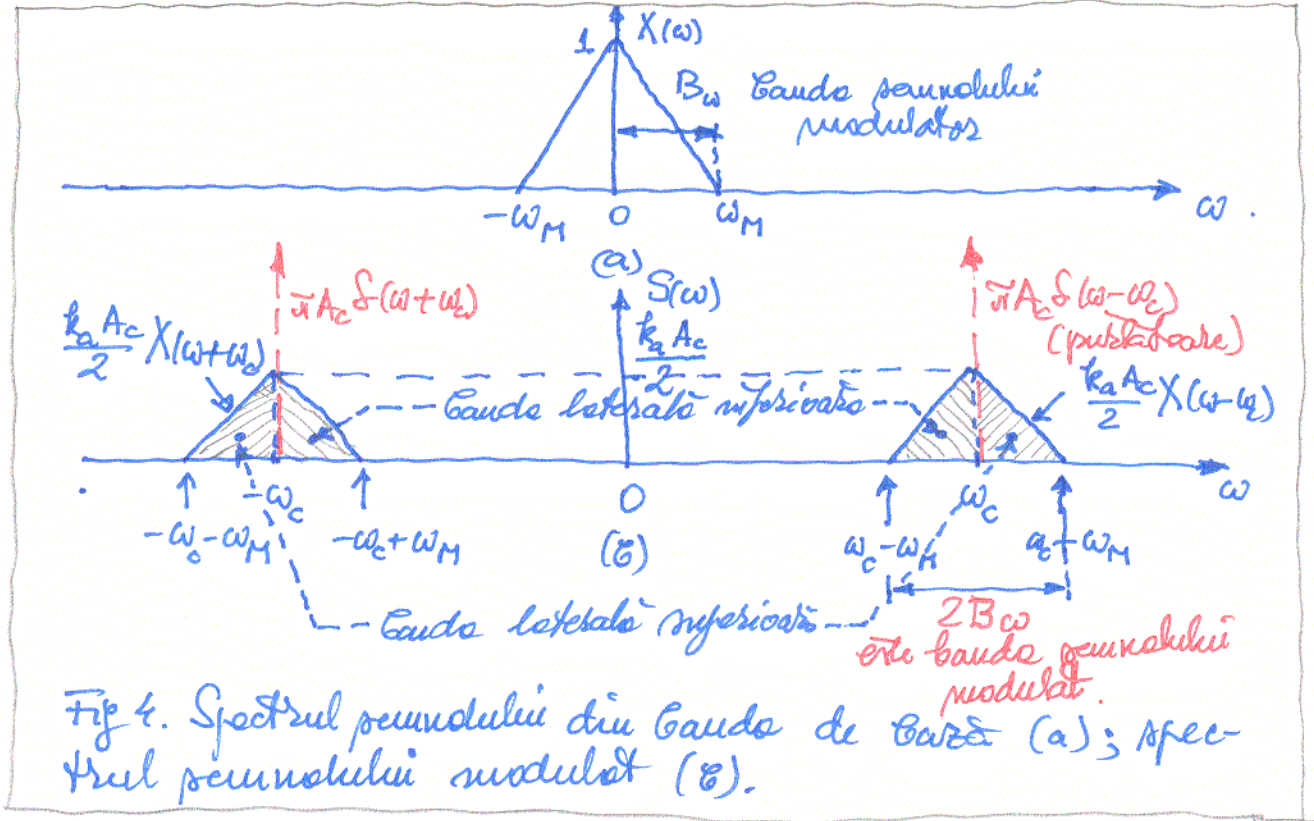 X(ω)
1
B_ω banda semnalului
modulator
-ω_M 0 ω_M ω .
(a)
πA_c δ(ω+ω_c) S(ω) πA_c δ(ω-ω_c)
(purtătoare)
k_a A_c/2 X(ω+ω_c) k_a A_c/2 k_a A_c/2 X(ω-ω_c)
banda laterală inferioară
-ω_c 0 ω_c ω
-ω_c-ω_M -ω_c+ω_M (b) ω_c-ω_M ω_c+ω_M
banda laterală superioară
2B_ω
este banda semnalului
modulat.
Fig 4. Spectrul semnalului din banda de bază (a); spec-
trul semnalului modulat (b).